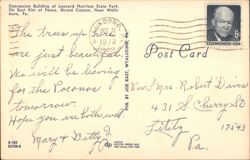 Concession Building at Leonard Harrison State Park.
On East Rim of Penna. Grand Canyon. Near Wells-
boro, Pa.
The trees up here
are just beautiful.
We will be leaving
for the Poconos
tomorrow.
Hope you're both well.
Mary &
1972
EISENHOWER·USA
Post Card
Rev. Mrs. Robert Davis
431 S. Cherry St
Lititz
17543
Pa.